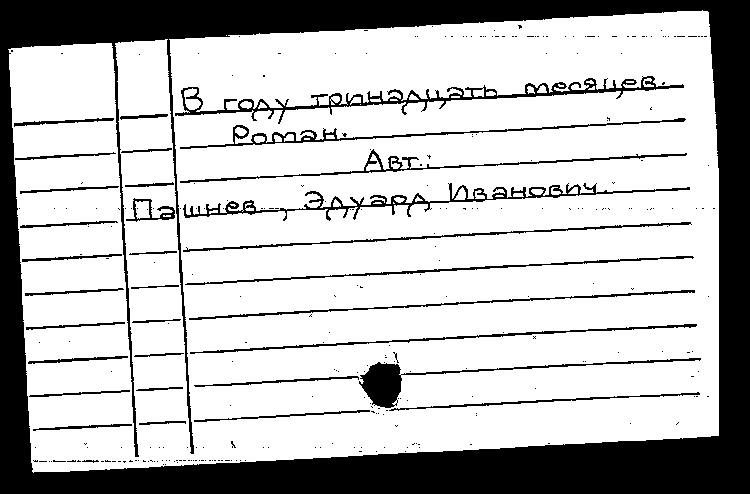 В году тринадцать месяцев.
Роман.
Авт.:
Пашнев, Эдуард Иванович.